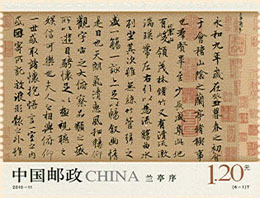 永和九年歲在癸丑暮春之初會
于會稽山陰之蘭亭脩稧事
也群賢畢至少長咸集此地
有崇山峻領茂林脩竹又有清流激
湍暎帶左右引以為流觴曲水
列坐其次雖無絲竹管弦之
盛一觴一詠亦足以暢敘幽情
是日也天朗氣清惠風和暢仰
觀宇宙之大俯察品類之盛
所以遊目騁懷足以極視聽之
娛信可樂也夫人之相與俯仰
一世或取諸懷抱悟言一室之內
或因寄所託放浪形骸之外雖
中国邮政 CHINA 兰亭序 1.20元
2010-11